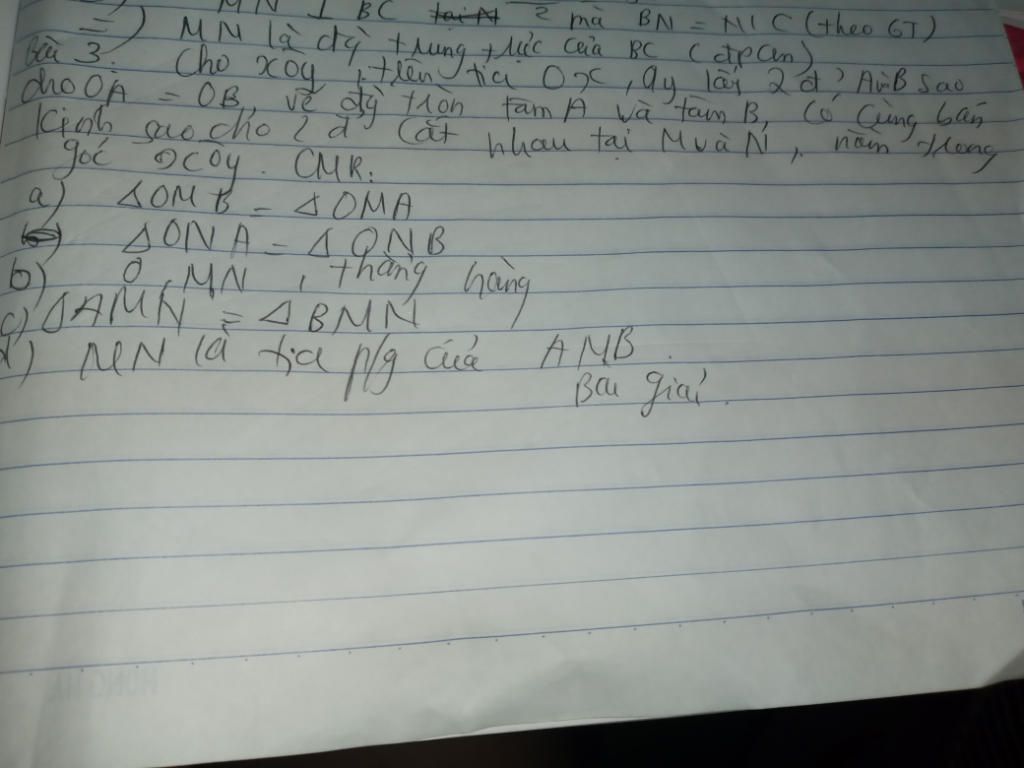 MN ⊥ BC tại N 2 mà BN = NC (theo GT)
=) MN là đg trung trực của BC (đpcm)
Bài 3. Cho xOy, trên tia Ox, Oy lấy 2 đ' A và B sao
cho OA = OB, vẽ đg tròn tâm A và tâm B, có cùng bán
kính sao cho 2 đ cắt nhau tại M và N, nằm trong
góc xOy. CMR:
a) ΔOMB = ΔOMA
ΔONA = ΔONB
b) O, MN, thẳng hàng
c) ΔAMN = ΔBMN
d) MN là tia p/g của AMB.
Bài giải.